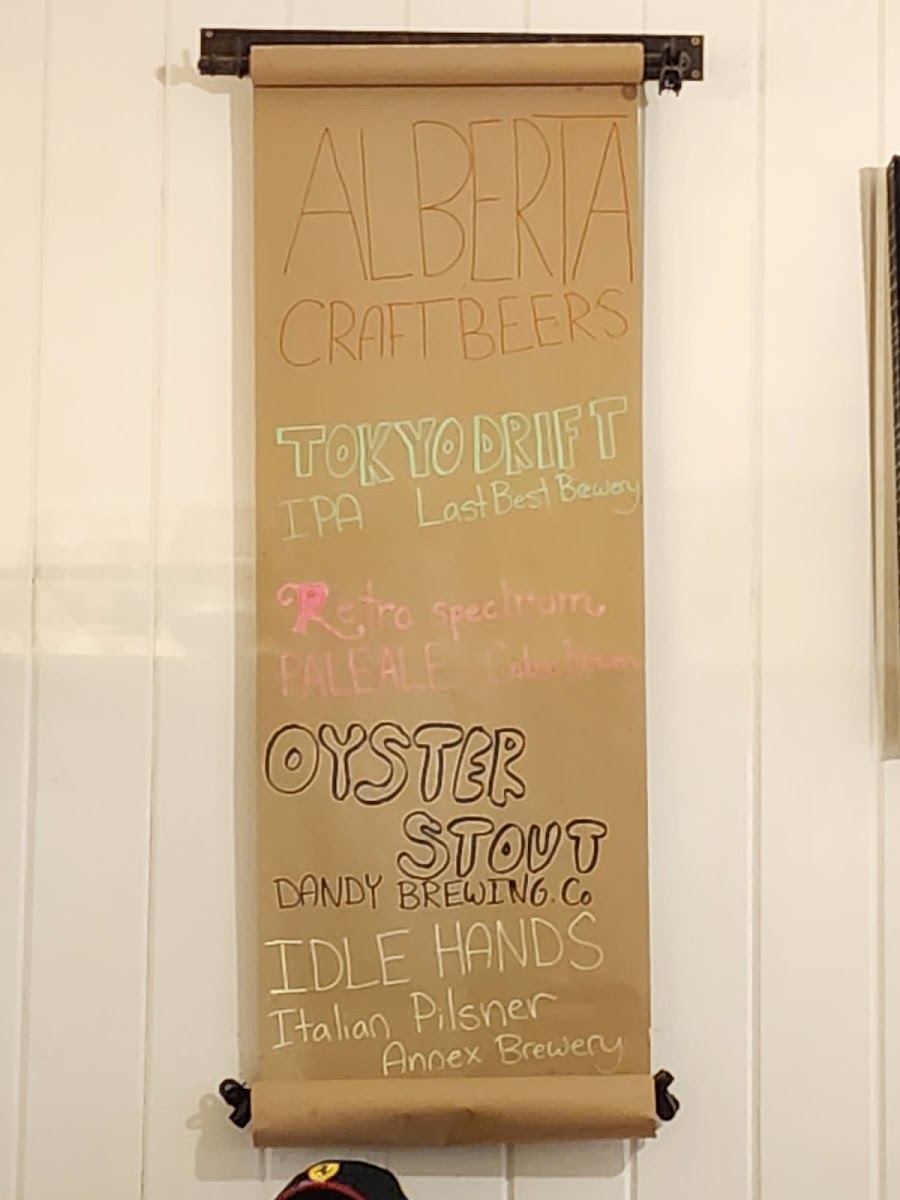 ALBERTA
CRAFT BEERS
TOKYO DRIFT
IPA Last Best Brewery
Retro spectrum
PALE ALE
OYSTER
STOUT
DANDY BREWING. Co
IDLE HANDS
Italian Pilsner
Annex Brewery